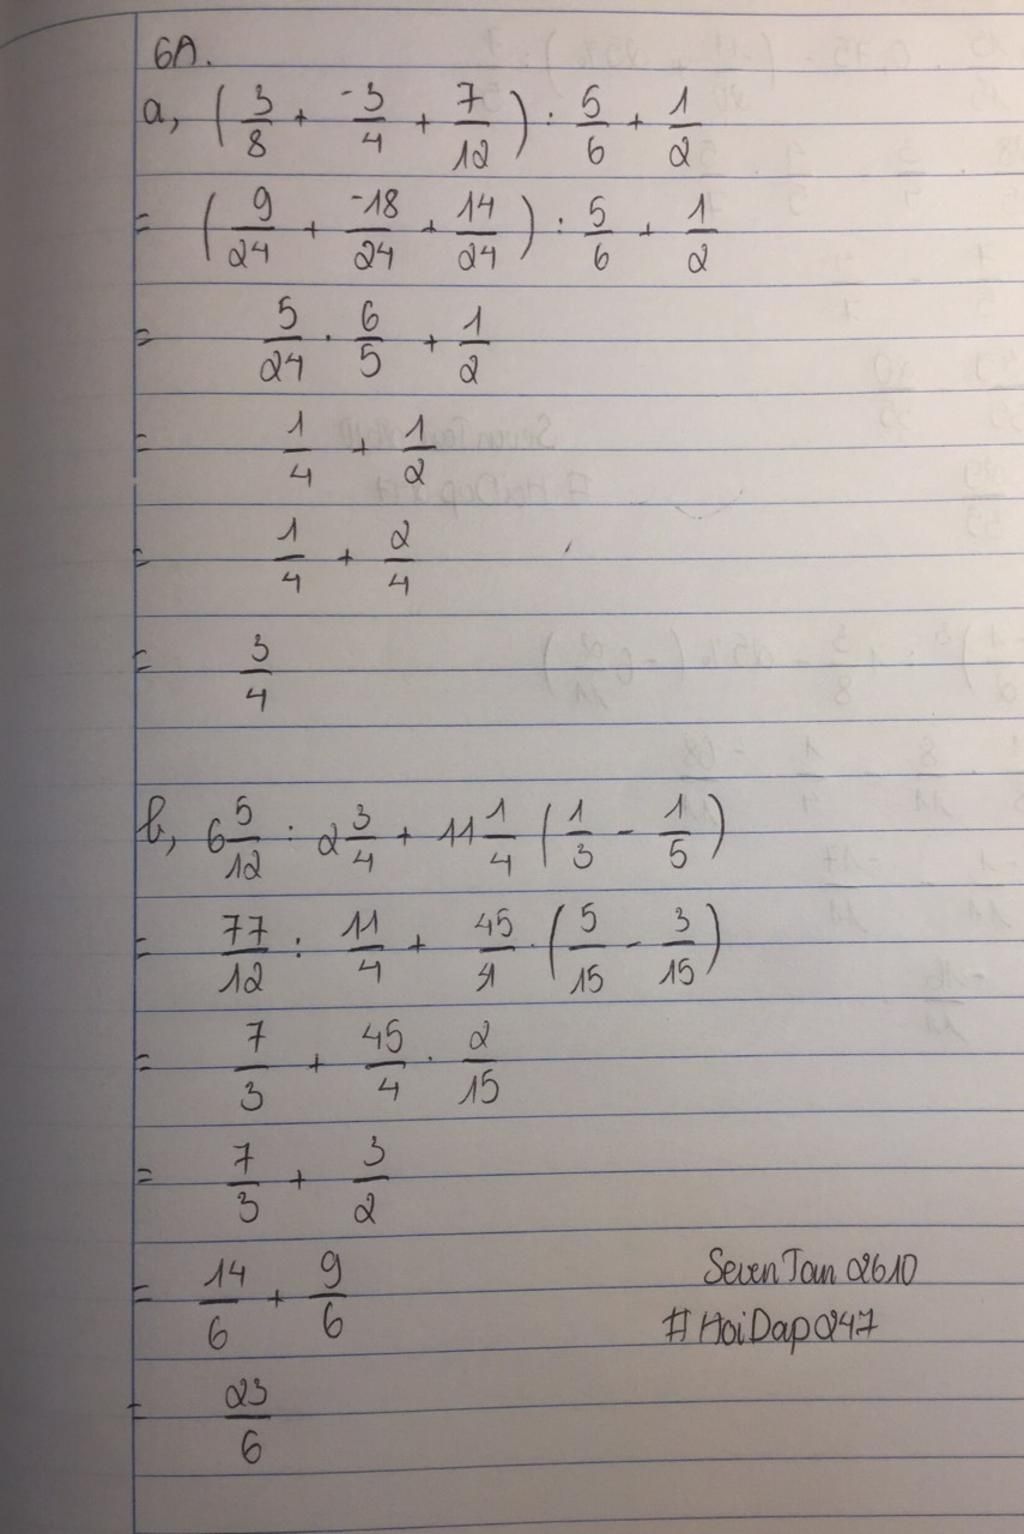 6A.
a, (3/8 + -3/4 + 7/12) : 5/6 + 1/2
= (9/24 + -18/24 + 14/24) : 5/6 + 1/2
= 5/24 . 6/5 + 1/2
= 1/4 + 1/2
= 1/4 + 2/4
= 3/4
b, 6 5/12 : 2 3/4 + 11 1/4 (1/3 - 1/5)
= 77/12 : 11/4 + 45/4 . (5/15 - 3/15)
= 7/3 + 45/4 . 2/15
= 7/3 + 3/2
= 14/6 + 9/6
SevenTan2610
#HoiDap247
= 23/6